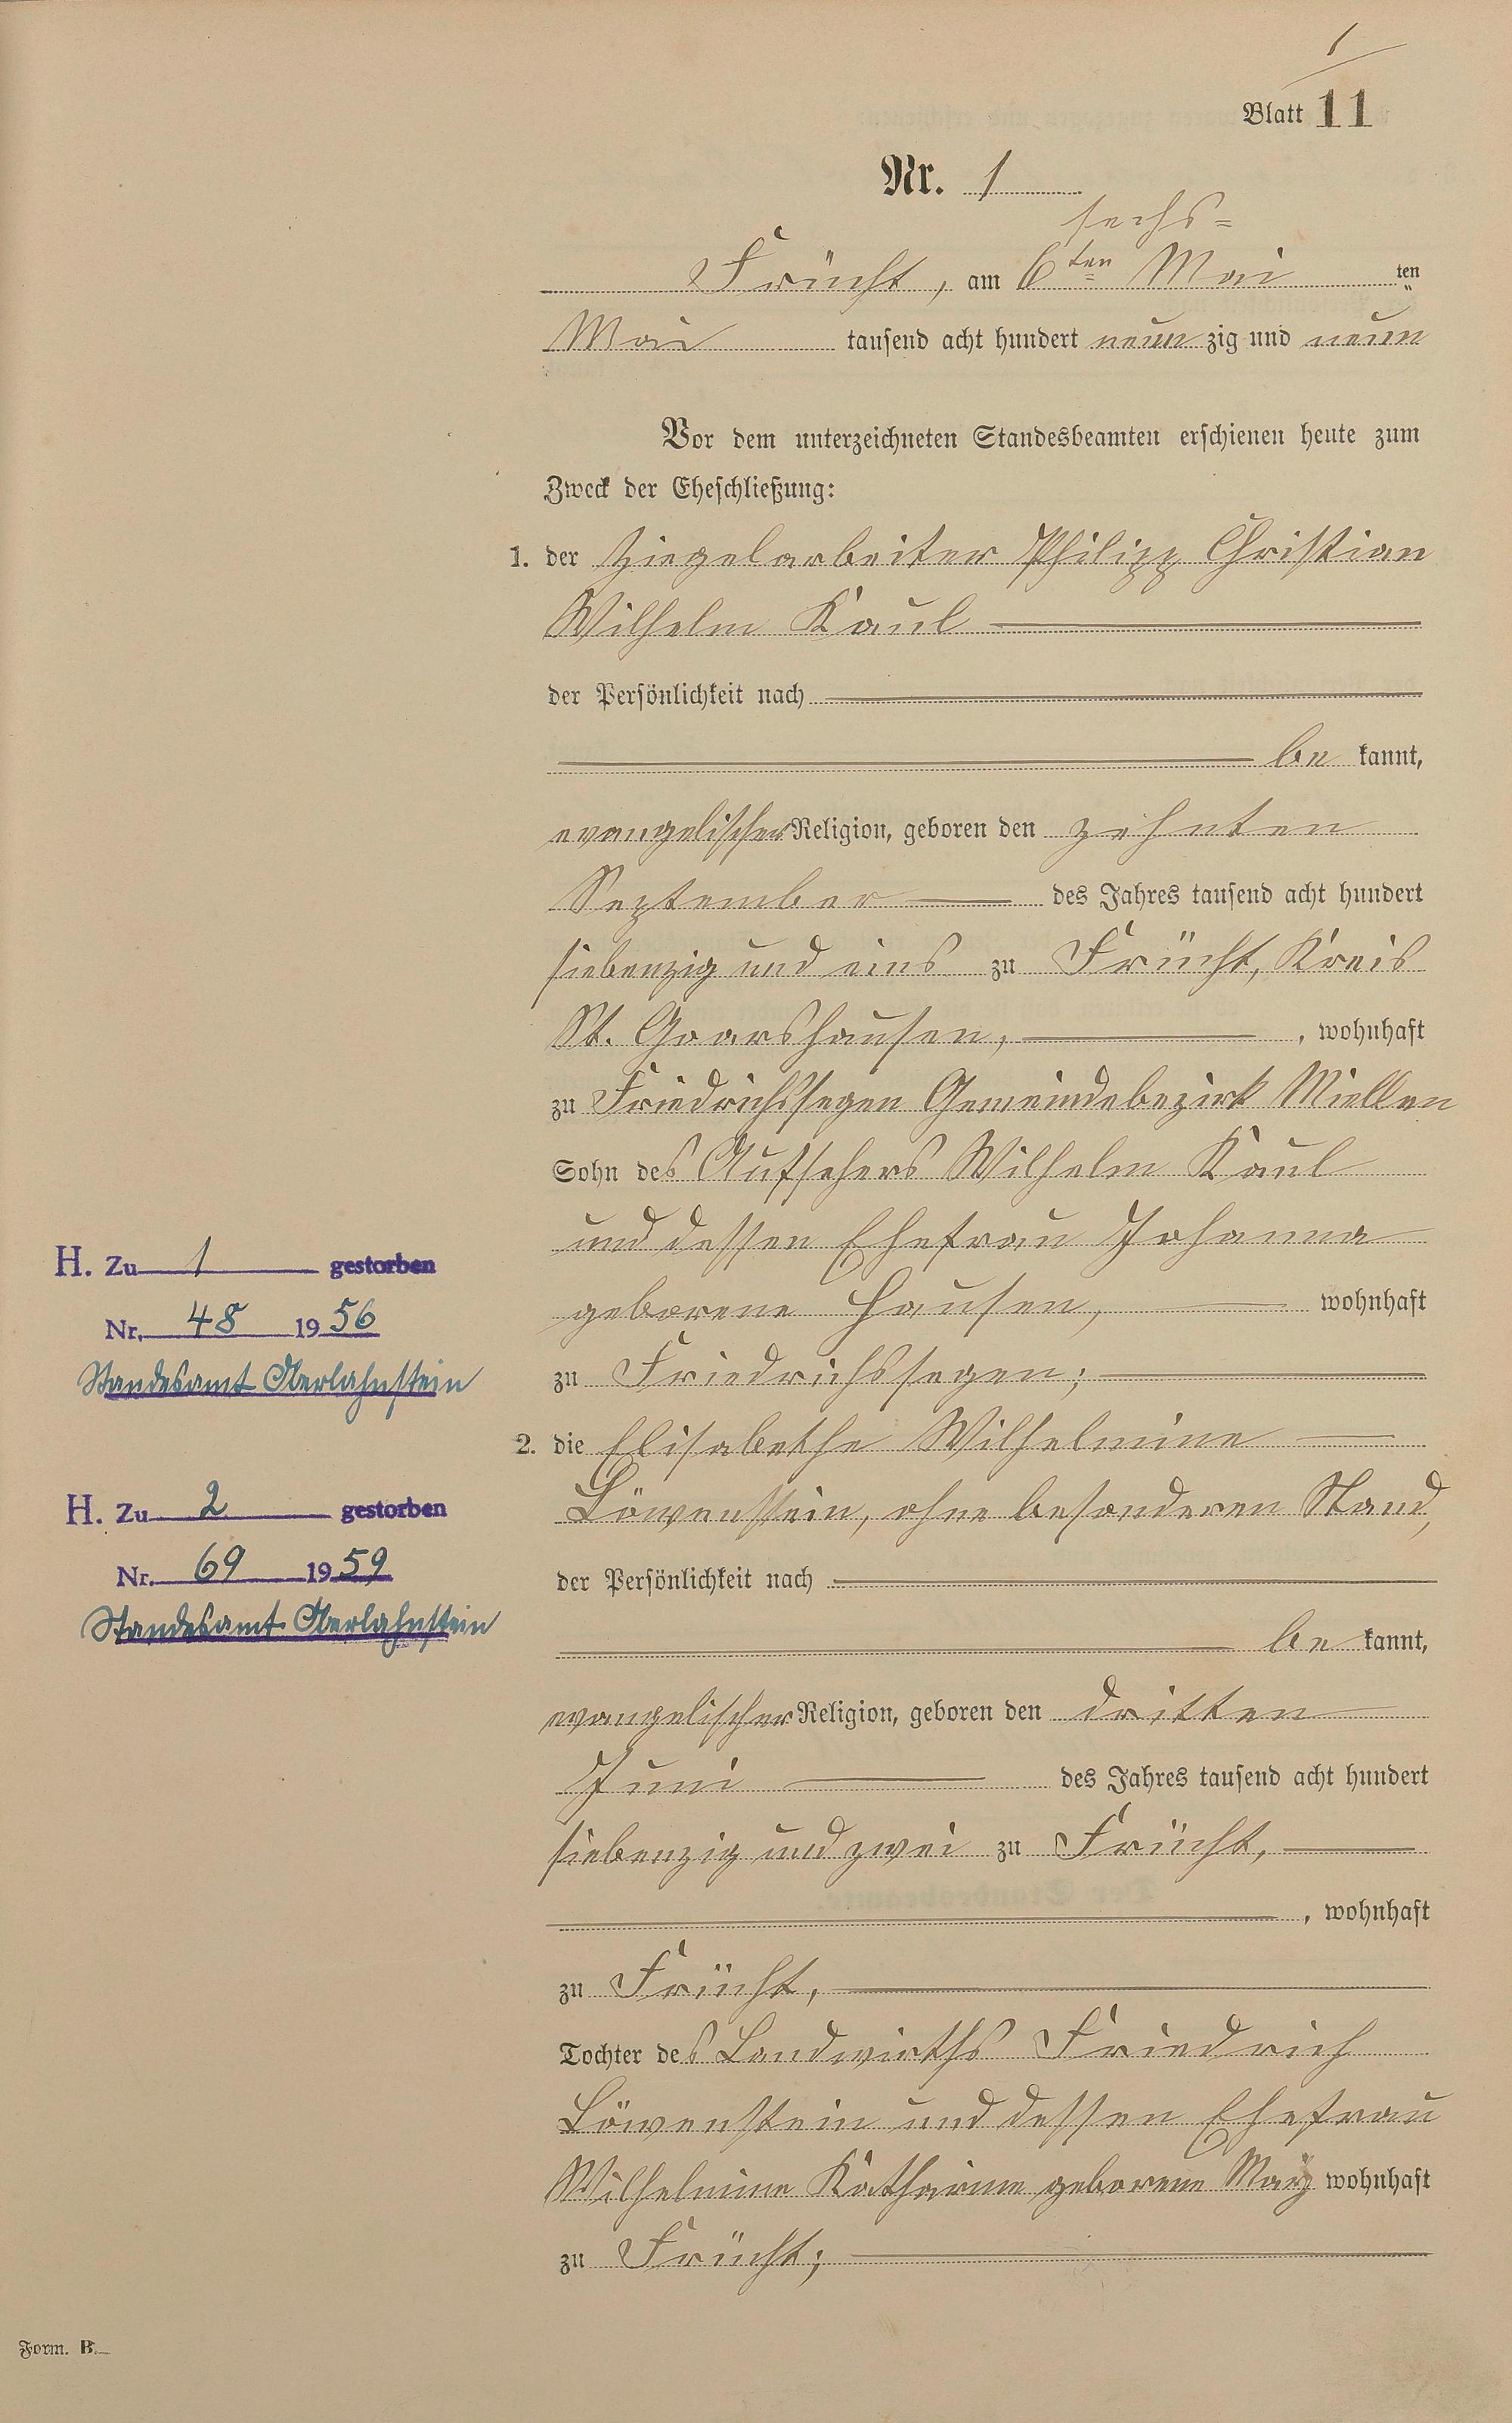 1
Blatt 11
Nr. 1
sechs=
Frücht, am 6ten Mai ten
Mai tausend acht hundert neun zig und neun
Vor dem unterzeichneten Standesbeamten erschienen heute zum
Zweck der Eheschließung:
1. der Ziegelarbeiter Philipp Christian
Wilhelm Kaul
der Persönlichkeit nach
be kannt,
evangelischer Religion, geboren den zehnten
September des Jahres tausend acht hundert
siebenzig und eins zu Frücht, Kreis
St. Goarshausen, , wohnhaft
zu Friedrichssegen Gemeindebezirk Miellen
Sohn des Aufsehers Wilhelm Kaul
und dessen Ehefrau Johanna
geborene Hausen, wohnhaft
zu Friedrichssegen;
2. die Elisabethe Wilhelmine
Löwenstein, ohne besonderen Stand,
der Persönlichkeit nach
be kannt,
evangelischer Religion, geboren den dritten
Juni des Jahres tausend acht hundert
siebenzig und zwei zu Frücht,
, wohnhaft
zu Frücht,
Tochter des Landwirths Friedrich
Löwenstein und dessen Ehefrau
Wilhelmine Katharine geborene wohnhaft
zu Frücht;
H. Zu 1 gestorben
Nr. 48 1956
Standesamt Oberlahnstein
H. Zu 2 gestorben
Nr. 69 1959
Standesamt Oberlahnstein
Form. B.